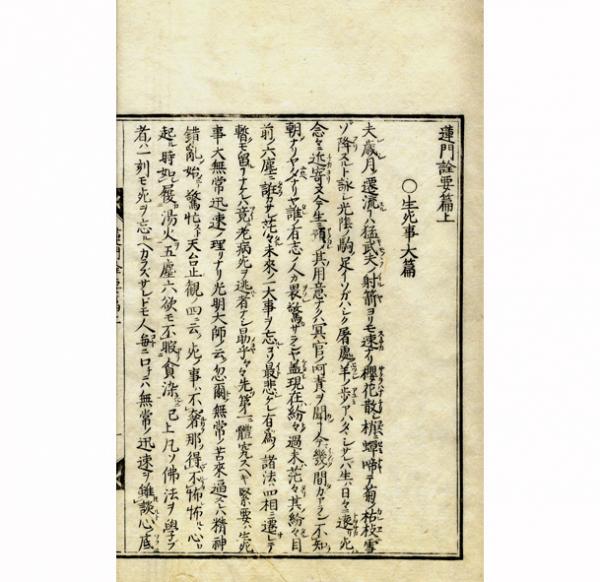 蓮門詮要篇上
○生死事大篇
夫歳月ノ遷流ハ猛武夫ノ射箭ヨリモ速ナリ櫻花散レ樹蟬啼テ菊ノ枯枝雪
ゾ降スルト詠レ光陰ノ駒ノ足イソガハシク屠處ノ羊ノ歩アハタヾシサレバ生ハ日々ニ遠ク死ハ
念々ニ近寄ヌ今生ノ預ノ其用意ナクハ冥官ノ呵責ヲ聞ク今幾間カアラン不知
朝ナリヤ夕ナリヤ誰ノ有志ノ人カ畏驚サランヤ蓋現在紛々過未茫々其紛々目
前ノ六塵ニ誑カサレ茫々未來ノ一大事ヲ忘ルヽゾ最悲グレ有爲ノ諸法ハ四相ニ遷レテ
暫モ留ナシ竟老病死ヲ逃者ナシ勗乎々々先第一體究スヘキ緊要ハ生死
事大無常迅速ノ理ナリ光明大師ノ云忽爾無常ノ苦來逼スレハ精神
錯亂始テ驚忙ス天台止觀ノ四ニ云ク死ノ事ハ不奢那得不怖怖ルヽ心
起ル時如履湯火五塵六欲モ不暇貪染已上凡ソ佛法ヲ學ブ
者ハ一刻モ死ヲ忘ルヘカラズサレドモ人毎ニ口ニハ無常ノ迅速ヲ雖談心底